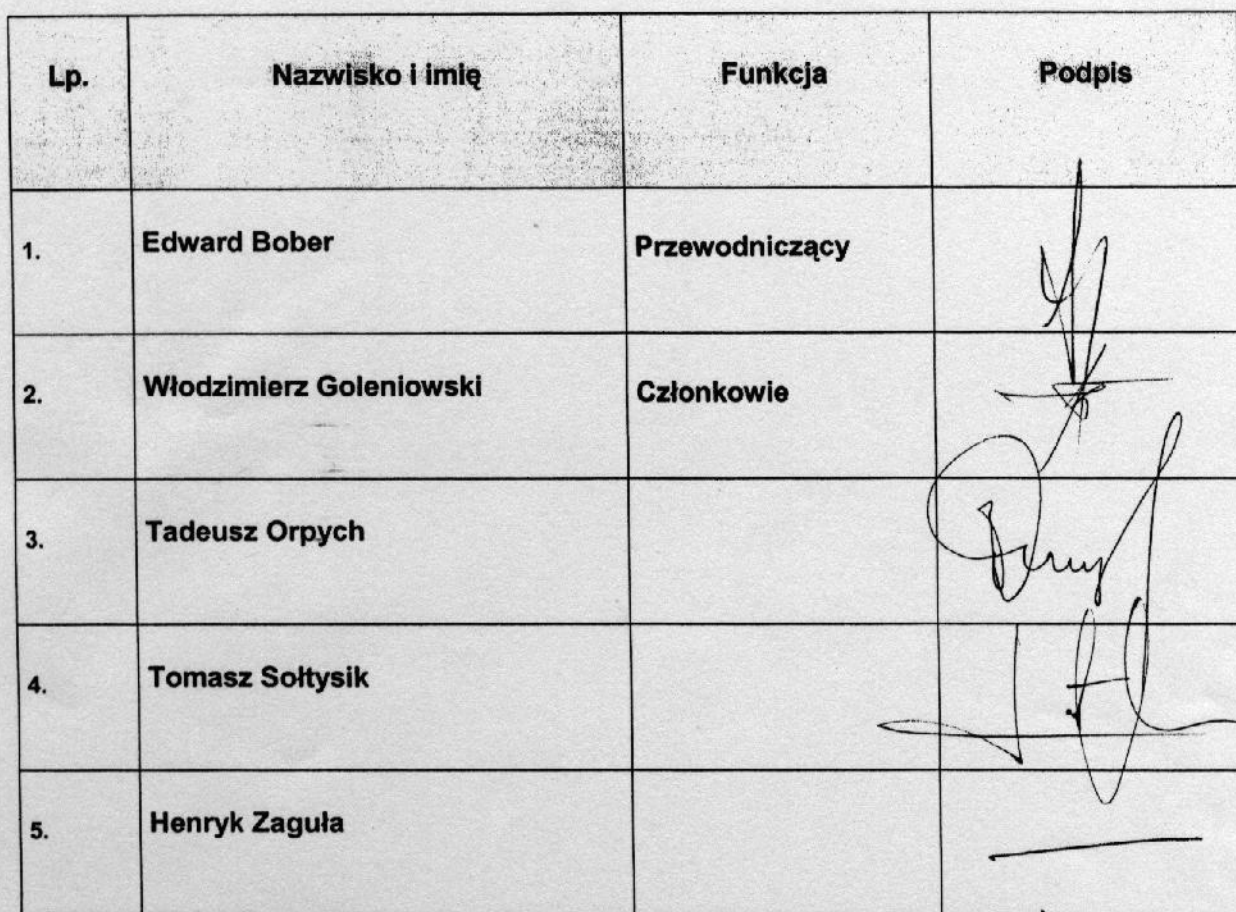 Lp. Nazwisko i imię Funkcja Podpis
1. Edward Bober Przewodniczący
2. Włodzimierz Goleniowski Członkowie
3. Tadeusz Orpych
4. Tomasz Sołtysik
5. Henryk Zaguła